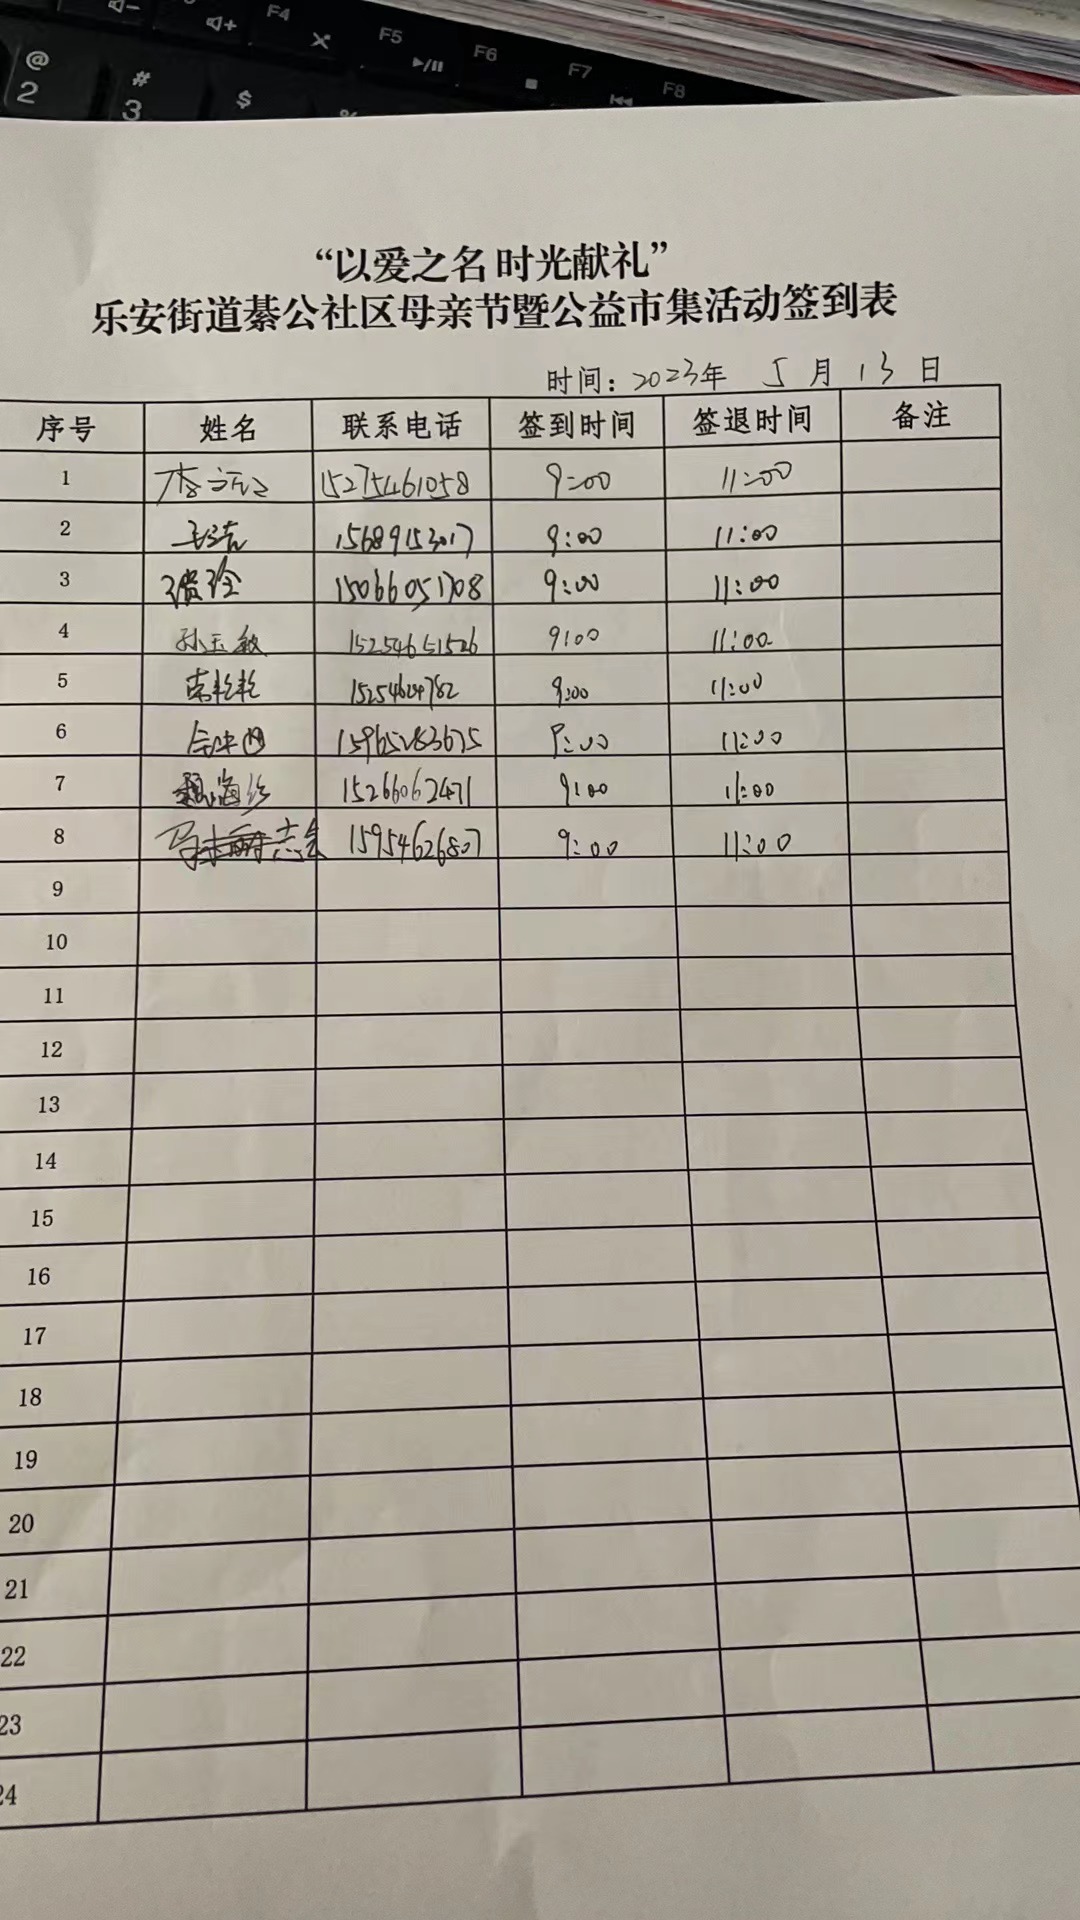 @
2
#
3
$
%
F4
F5
F6
F7
F8
“以爱之名 时光献礼”
乐安街道綦公社区母亲节暨公益市集活动签到表
时间：2023年 5月 13日
序号 姓名 联系电话 签到时间 签退时间 备注
1 15275461058 9:00 11:00
2 王洁 15689153017 9:00 11:00
3 15066051708 9:00 11:00
4 孙玉敏 15254651526 9:00 11:00
5 9:00 11:00
6 9:00 11:00
7 魏海珍 15266062471 9:00 11:00
8 15954626807 9:00 11:00
9
10
11
12
13
14
15
16
17
18
19
20
21
22
23
24